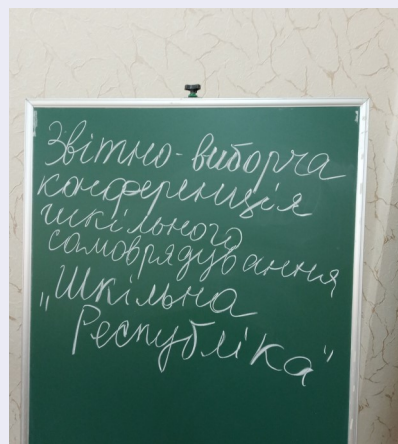 Звітно-виборча
конференція
шкільного
самоврядування
„Шкільна
Республіка"